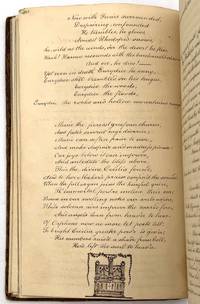 Now with Furies surrounded,
Despairing, confounded,
He trembles, he glows,
Amidst Rhodope's snows:
See, wild as the winds, o'er the desert he flies
Hark! Haemus resounds with the bacchanals cries
Ah see, he dies!
Yet even in death Eurydice he sung,
Eurydice still trembled on his tongue,
Eurydice the woods,
Eurydice the floods,
Eurydice the rocks and hollow mountains rung.
Music the fiercest grief can charm,
And fate's severest rage disarm:
Music can soften pain to ease,
And make despair and madness please:
Our joys below it can improve,
And antedate the bliss above.
This the divine Cecilia found,
And to her Maker's praise confined the sound.
When the full organ joins the tuneful quire,
Th' immortal pow'rs incline their ear:
Borne on our swelling notes our souls aspire,
While solemn airs improve the sacred fire:
And angels lean from heav'n to hear.
Of Orpheus now no more let poets tell,
To bright Cecilia greater pow'r is given;
His numbers rais'd a shade from hell,
Hers lift the soul to heav'n.